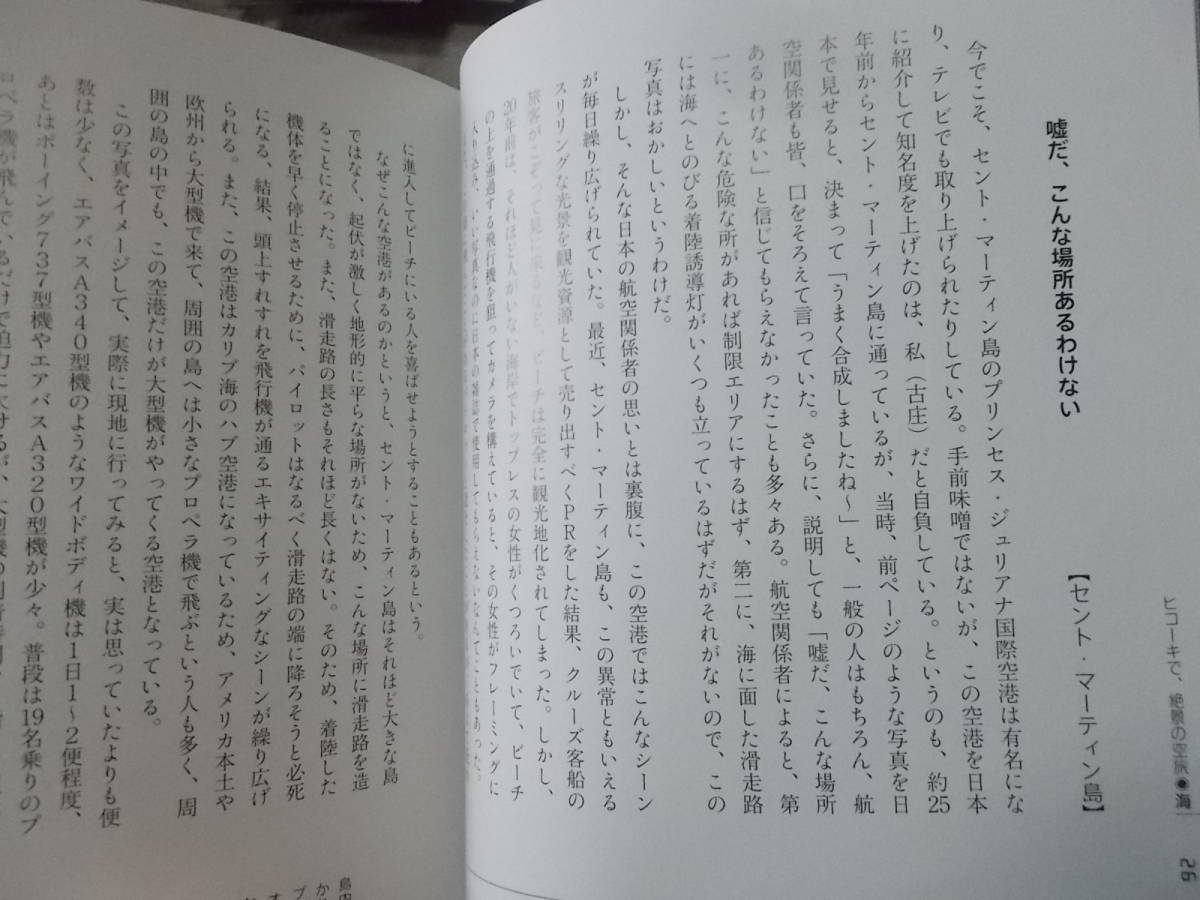 ヒコーキで、絶景の空旅●海
26
嘘だ、こんな場所あるわけない
【セント・マーティン島】
今でこそ、セント・マーティン島のプリンセス・ジュリアナ国際空港は有名にな
り、テレビでも取り上げられたりしている。手前味噌ではないが、この空港を日本
に紹介して知名度を上げたのは、私（古庄）だと自負している。というのも、約25
年前からセント・マーティン島に通っているが、当時、前ページのような写真を日
本で見せると、決まって「うまく合成しましたね〜」と、一般の人はもちろん、航
空関係者も皆、口をそろえて言っていた。さらに、説明しても「嘘だ、こんな場所
あるわけない」と信じてもらえなかったことも多々ある。航空関係者によると、第
一に、こんな危険な所があれば制限エリアにするはず、第二に、海に面した滑走路
には海へとのびる着陸誘導灯がいくつも立っているはずだがそれがないので、この
写真はおかしいというわけだ。
しかし、そんな日本の航空関係者の思いとは裏腹に、この空港ではこんなシーン
が毎日繰り広げられていた。最近、セント・マーティン島も、この異常ともいえる
スリリングな光景を観光資源として売り出すべくPRをした結果、クルーズ客船の
旅客がこぞって見に来るなど、ビーチは完全に観光地化されてしまった。しかし、
20年前は、それほど人がいない海岸でトップレスの女性がくつろいでいて、ビーチ
の上を通過する飛行機を狙ってカメラを構えていると、その女性がフレーミングに
入り込み、いい写真なのに日本の雑誌で使用してもらえないなんてこともあった。
に進入してビーチにいる人を喜ばせようとすることもあるという。
なぜこんな空港があるのかというと、セント・マーティン島はそれほど大きな島
ではなく、起伏が激しく地形的に平らな場所がないため、こんな場所に滑走路を造
ることになった。また、滑走路の長さもそれほど長くはない。そのため、着陸した
機体を早く停止させるために、パイロットはなるべく滑走路の端に降ろそうと必死
になる。結果、頭上すれすれを飛行機が通るエキサイティングなシーンが繰り広げ
られる。また、この空港はカリブ海のハブ空港になっているため、アメリカ本土や
欧州から大型機で来て、周囲の島へは小さなプロペラ機で飛ぶという人も多く、周
囲の島の中でも、この空港だけが大型機がやってくる空港となっている。
この写真をイメージして、実際に現地に行ってみると、実は思っていたよりも便
数は少なく、エアバスA340型機のようなワイドボディ機は1日1〜2便程度、
あとはボーイング737型機やエアバスA320型機が少々。普段は19名乗りのプ
ロペラ機が飛んでいるだけで迫力に欠けるが、大型機の
島内